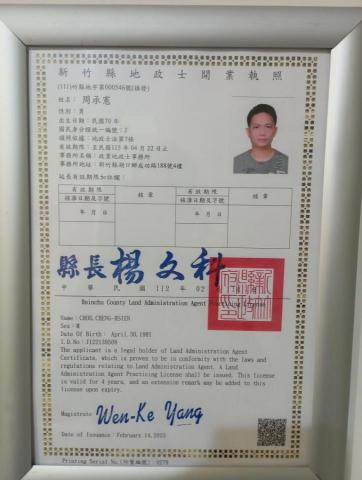 新竹縣地政士開業執照
(111)竹縣地字第000546號(換發)
姓名：周承憲
性別：男
出生日期：民國70年
國民身分證統一編號：J
核照依據：地政士法第7條
有效期限：至民國115年04月22日止
事務所名稱：政業地政士事務所
事務所地址：新竹縣湖口鄉成功路188號4樓
延長有效期限加註欄：
有效期限 核准日期及字號 核章 有效期限 核准日期及字號 核章
年 月 日 年 月 日
縣長 楊文科
中華民國 112 年 02
Hsinchu County Land Administration Agent Practicing
Name: CHOU, CHENG-HSIEN
Sex: M
Date Of Birth: April.30,1981
I.D.No: J122139508
The applicant is a legal holder of Land Administration Agent
Certificate, which is proven to be in conformity with the laws and
regulations relating to Land Administration Agent. A Land
Administration Agent Practicing License shall be issued. This license
is valid for 4 years, and an extension remark may be added to this
license upon expiry.
Magistrate Wen-Ke Yang
Date of Issuance: February.14,2023
Printing Serial No.(印製編號): 0279